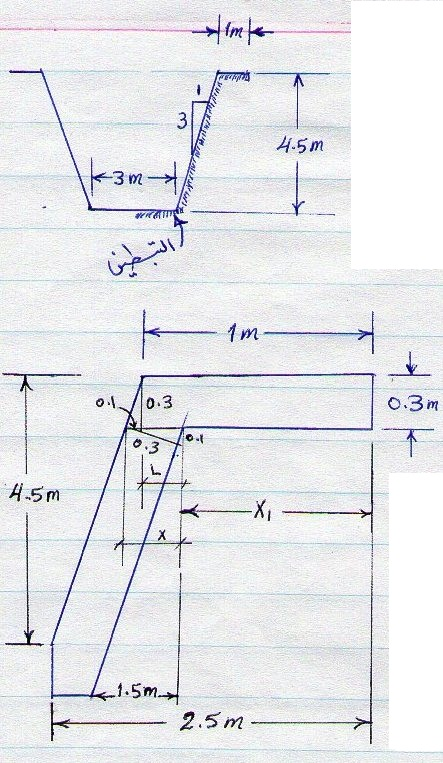 1m
1
3
4.5m
3m
التبطين
1m
0.1
0.3
0.3m
0.3
0.1
L
4.5m
X₁
x
1.5m
2.5m